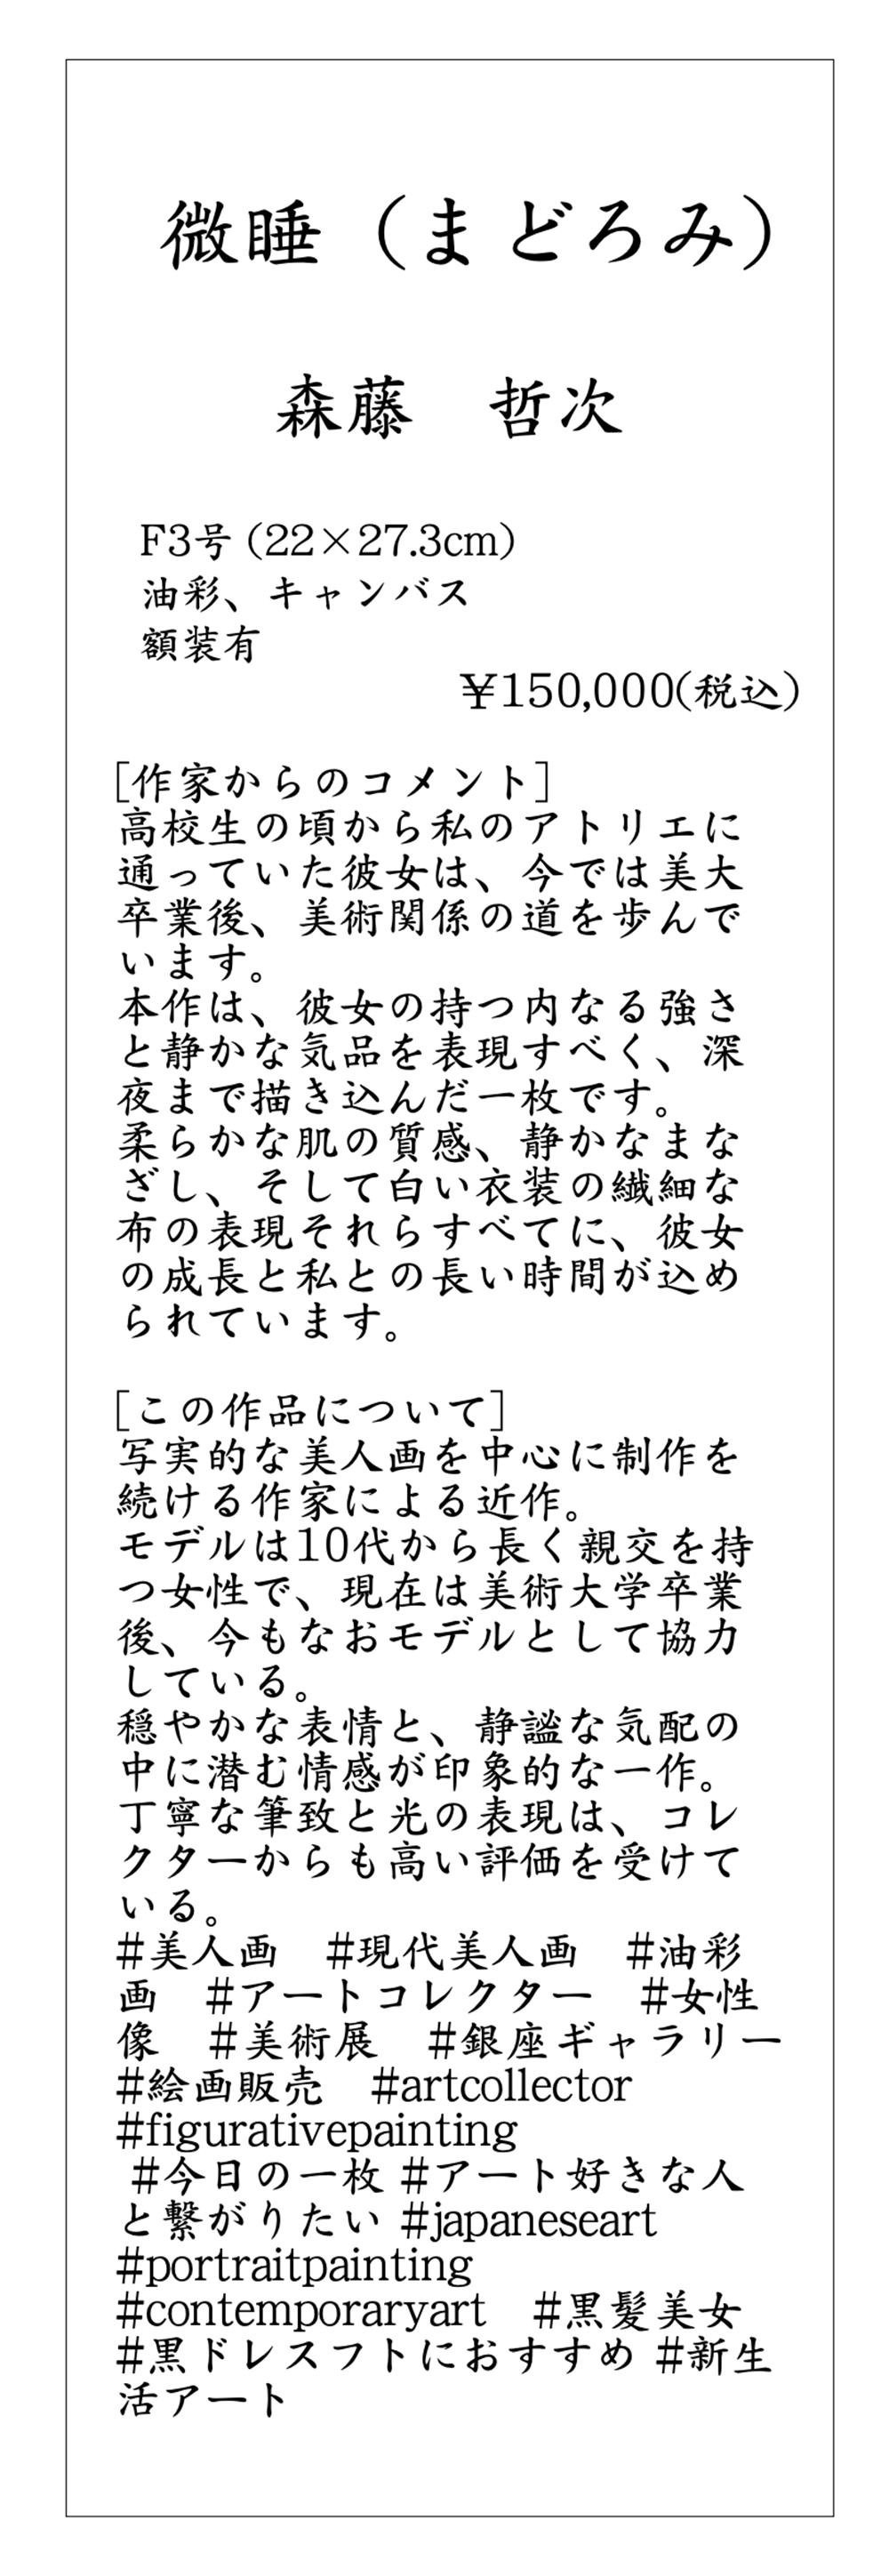 微睡（まどろみ）
森藤　哲次
F3号 (22×27.3cm)
油彩、キャンバス
額装有
¥150,000(税込)
[作家からのコメント]
高校生の頃から私のアトリエに
通っていた彼女は、今では美大
卒業後、美術関係の道を歩んで
います。
本作は、彼女の持つ内なる強さ
と静かな気品を表現すべく、深
夜まで描き込んだ一枚です。
柔らかな肌の質感、静かなまな
ざし、そして白い衣装の繊細な
布の表現それらすべてに、彼女
の成長と私との長い時間が込め
られています。
[この作品について]
写実的な美人画を中心に制作を
続ける作家による近作。
モデルは10代から長く親交を持
つ女性で、現在は美術大学卒業
後、今もなおモデルとして協力
している。
穏やかな表情と、静謐な気配の
中に潜む情感が印象的な一作。
丁寧な筆致と光の表現は、コレ
クターからも高い評価を受けて
いる。
#美人画　#現代美人画　#油彩
画　#アートコレクター　#女性
像　#美術展　#銀座ギャラリー
#絵画販売　#artcollector
#figurativepainting
#今日の一枚 #アート好きな人
と繋がりたい #japaneseart
#portraitpainting
#contemporaryart　#黒髪美女
#黒ドレスフトにおすすめ #新生
活アート